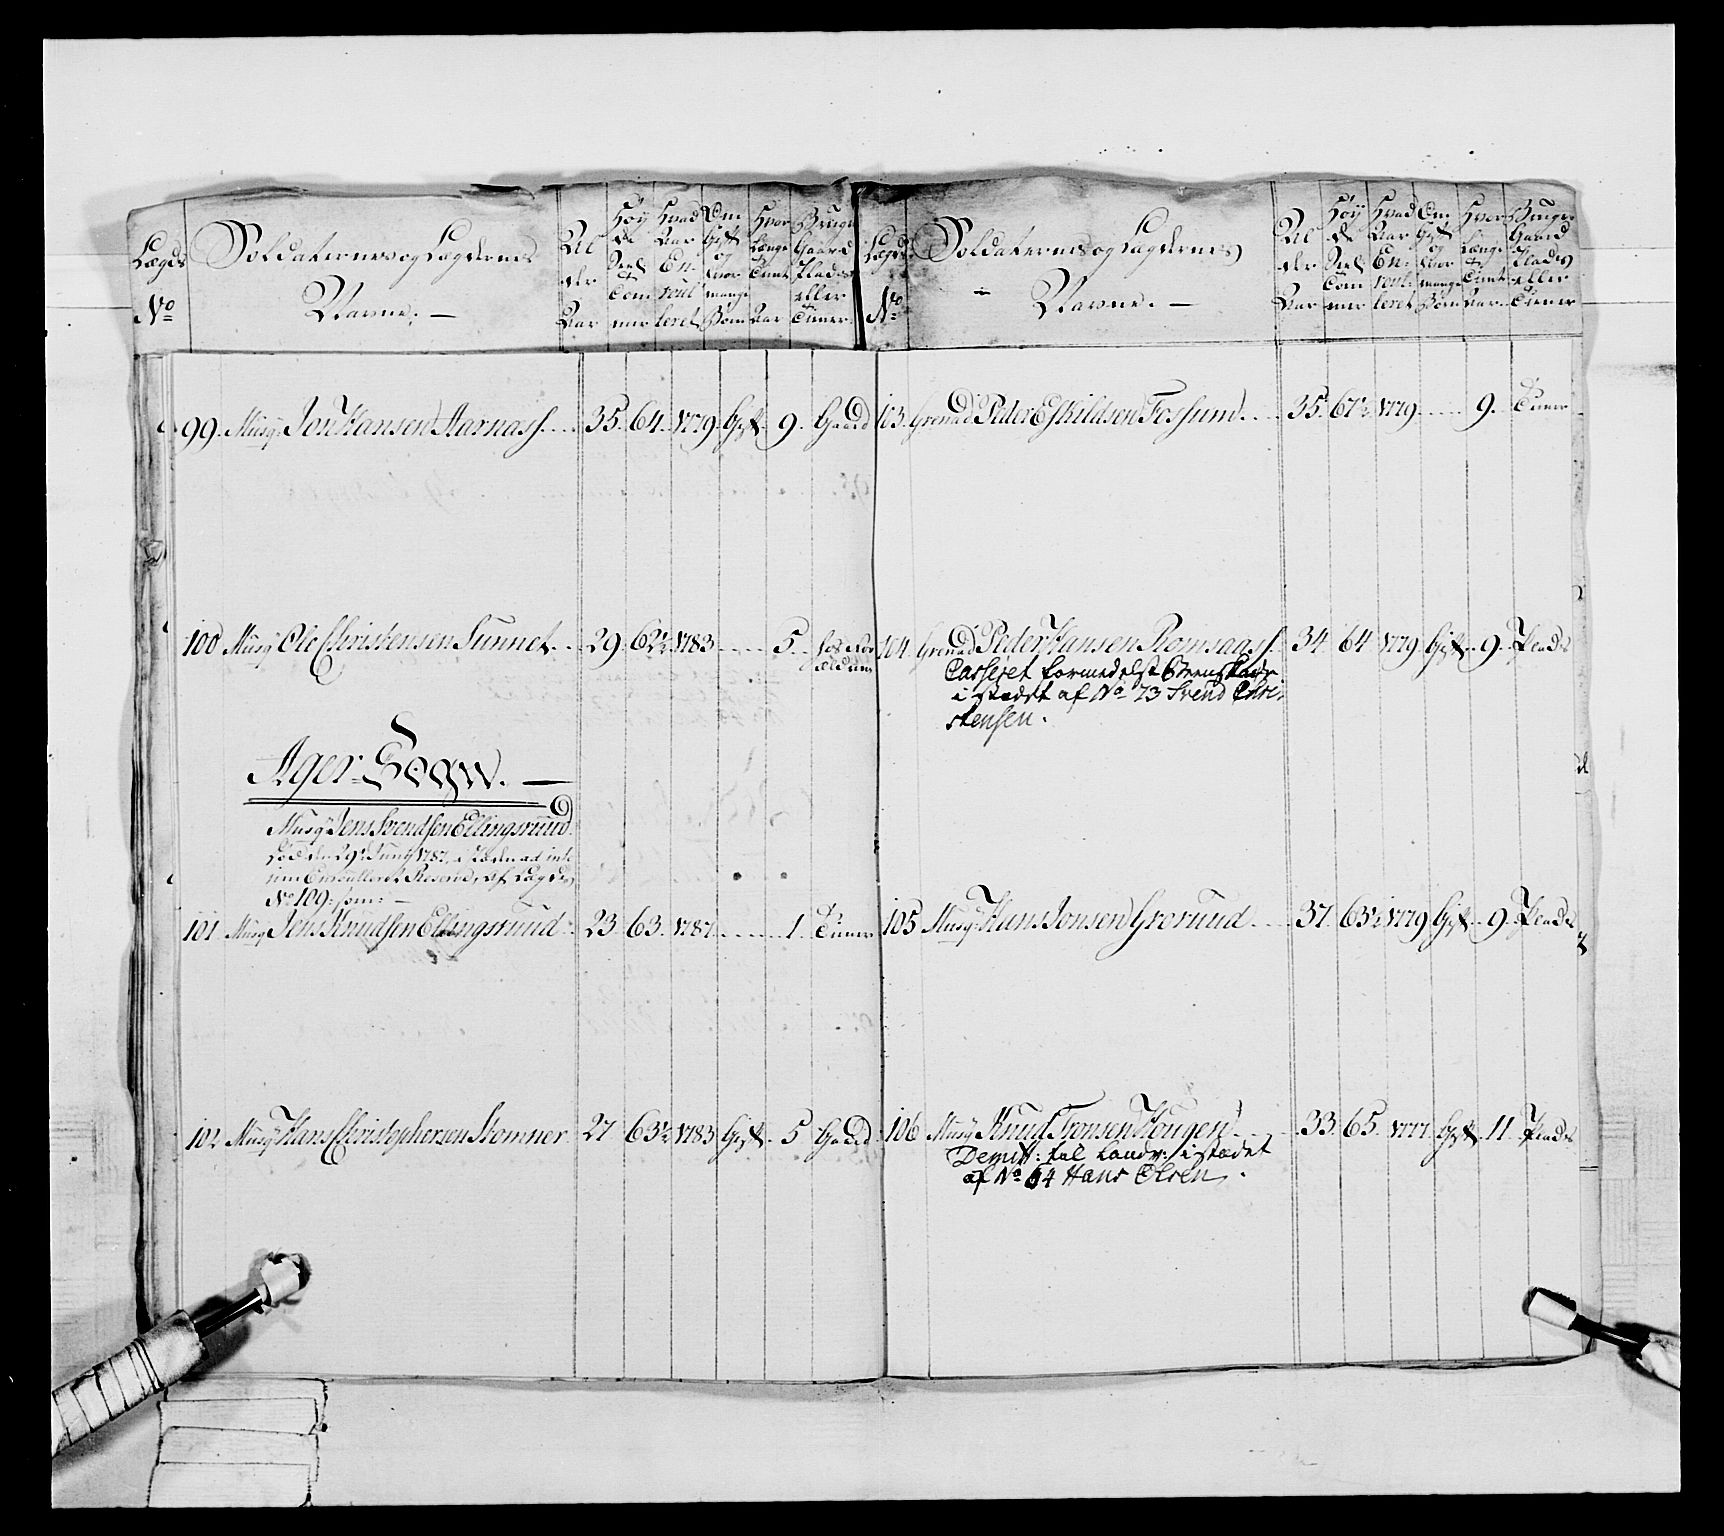 Lægds No
Soldaternes og Lægdernes Navne. —
Al der Aar
Høyde Seel Tommer
Hvad Aar Enroulleret
Om Gift og hvor mange Børn
Hvor Længe Tient Aar
Bruger Gaard Pladts eller Tiener
99. Musq: Jon Hansen Aarnass. 35. 64. 1779. Gift. 9. Gaard
100 Musq Ole Christensen Sunnet. 29. 62½ 1783 5.
Ager-Sogn. —
Musq: Jens Svendsen Ellingsruud
død den 29de Junij 1787, i stæden ad inte
rim Enroulleret Reserve, af Lægdet
No 109: som: —
101 Musq Jens Knudsen Ellingsruud 23. 63. 1787 1. Tiener
102 Musq Hans Christophersen Stomner 27 63½ 1783 Gift. 5 Gaard
Lægds No
Soldaternes og Lægdernes Navne. —
Al der Aar
Høyde Seel Tommer
Hvad Aar Enroulleret
Om Gift og hvor mange Børn
Hvor Længe Tient Aar
Bruger Gaard Pladts eller Tiener
103. Grenad Peder Eskildsen Fossum. 35. 67½ 1779 9. Tiener
104 Grenad Peder Hansen Romsaass 34 64 1779 Gift. 9. Plads
Casseret formedelst Steenskade
i stædet af No 73 Svend Chri
stensen.
105 Musq: Hans Jonsen Grorund 37. 63½ 1779 Gift. 9. Plads
106 Musq Knud Tronsen Hougen 33. 65. 1777. Gift. 11 Plads
Demitt: tul Landv: i stædet
af No 64 Hans Olsen.